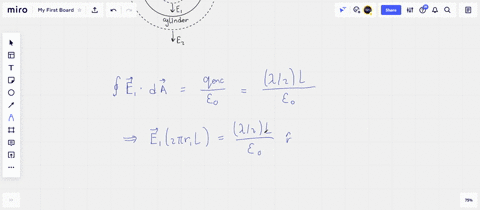 miro
My First Board
Share
E₁
cylinder
E₂
∮ E⃗₁ · dA⃗ = qenc / ε₀ = (λ/2) L / ε₀
⇒ E⃗₁ (2πr₁L) = (λ/2) L / ε₀ r̂
79%